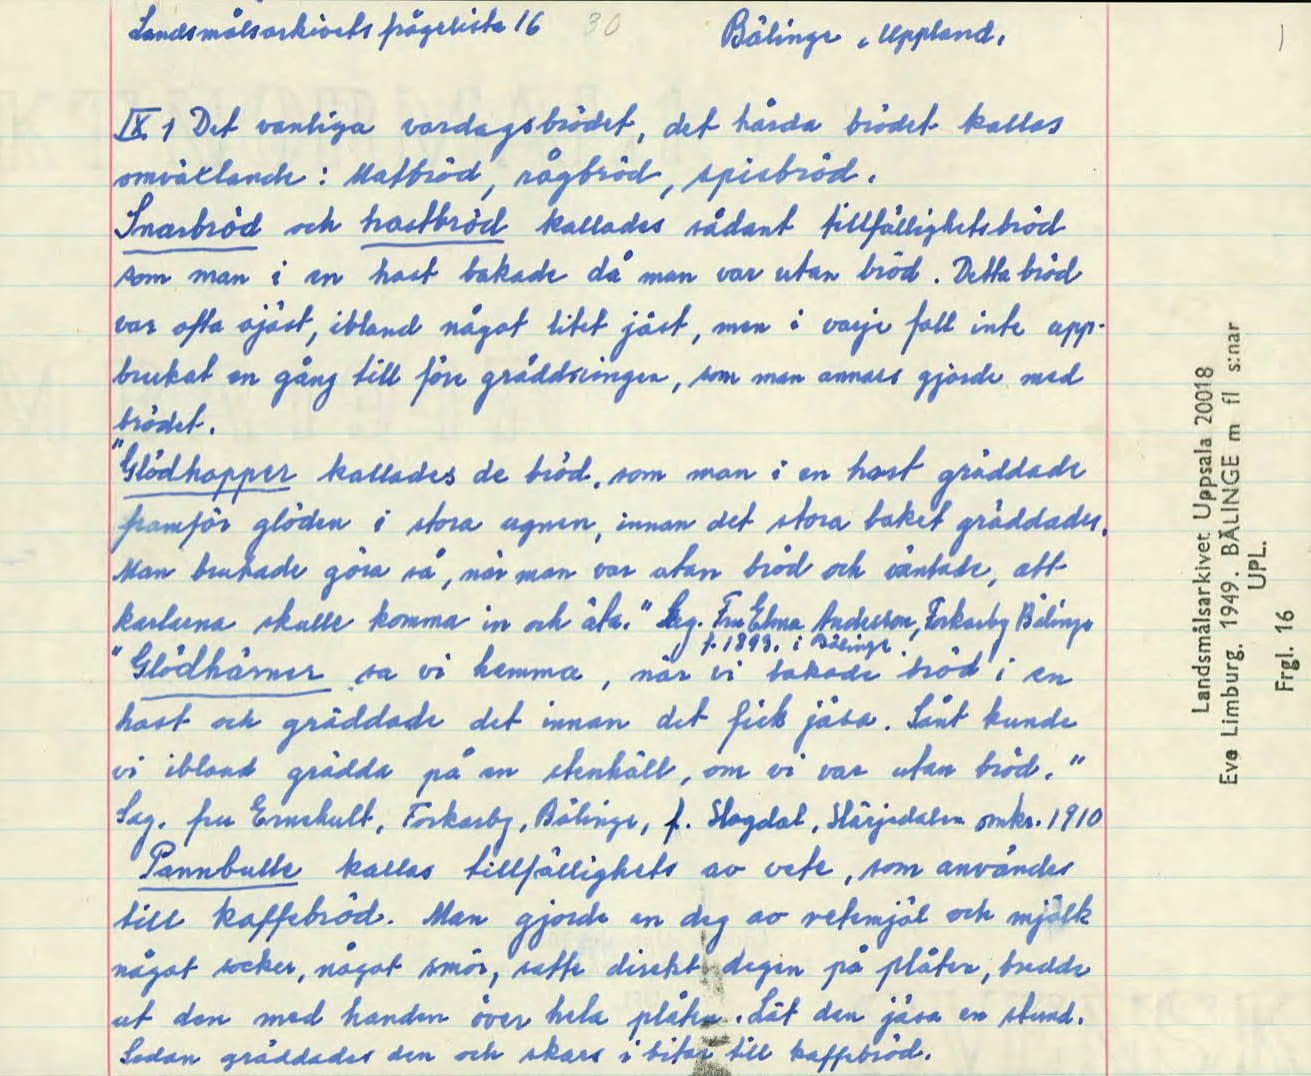 Landsmålsarkivets frågelista 16 30 Bälinge, Uppland. 1
IX 1 Det vanliga vardagsbrödet, det hårda brödet kallas
omväxlande: Matbröd, rågbröd, spisbröd.
Snarbröd och hastbröd kallades sådant tillfällighetsbröd
som man i en hast bakade då man var utan bröd. Detta bröd
var ofta ojäst, ibland något litet jäst, men i varje fall inte upp-
brukat en gång till före gräddningen, som man annars gjorde med
brödet.
"Glödhopper kallades de bröd, som man i en hast gräddade
framför glöden i stora ugnen, innan det stora baket gräddades.
Man brukade göra så, när man var utan bröd och väntade, att
karlarna skulle komma in och äta." Sag. Fru Elma Andersson, Forkarby Bälinge
f. 1893. i Bälinge.
"Glödhärner sa vi hemma, när vi bakade bröd i en
hast och gräddade det innan det fick jäsa. Sånt kunde
vi ibland grädda på en stenhäll, om vi var utan bröd."
Sag. fru Ernehult, Forkarby, Bälinge, f. Slagdal, Härjedalen omkr. 1910
Pannbulle kallas tillfällighets av vete, som användes
till kaffebröd. Man gjorde en deg av vetemjöl och mjölk
något socker, något smör, satte direkt degen på plåten, bredde
ut den med handen över hela plåten. Lät den jäsa en stund.
Sedan gräddades den och skars i bitar till kaffebröd.
Landsmålsarkivet Uppsala 20018
Eva Limburg. 1949. BÄLINGE m fl s:nar
UPL.
Frgl. 16